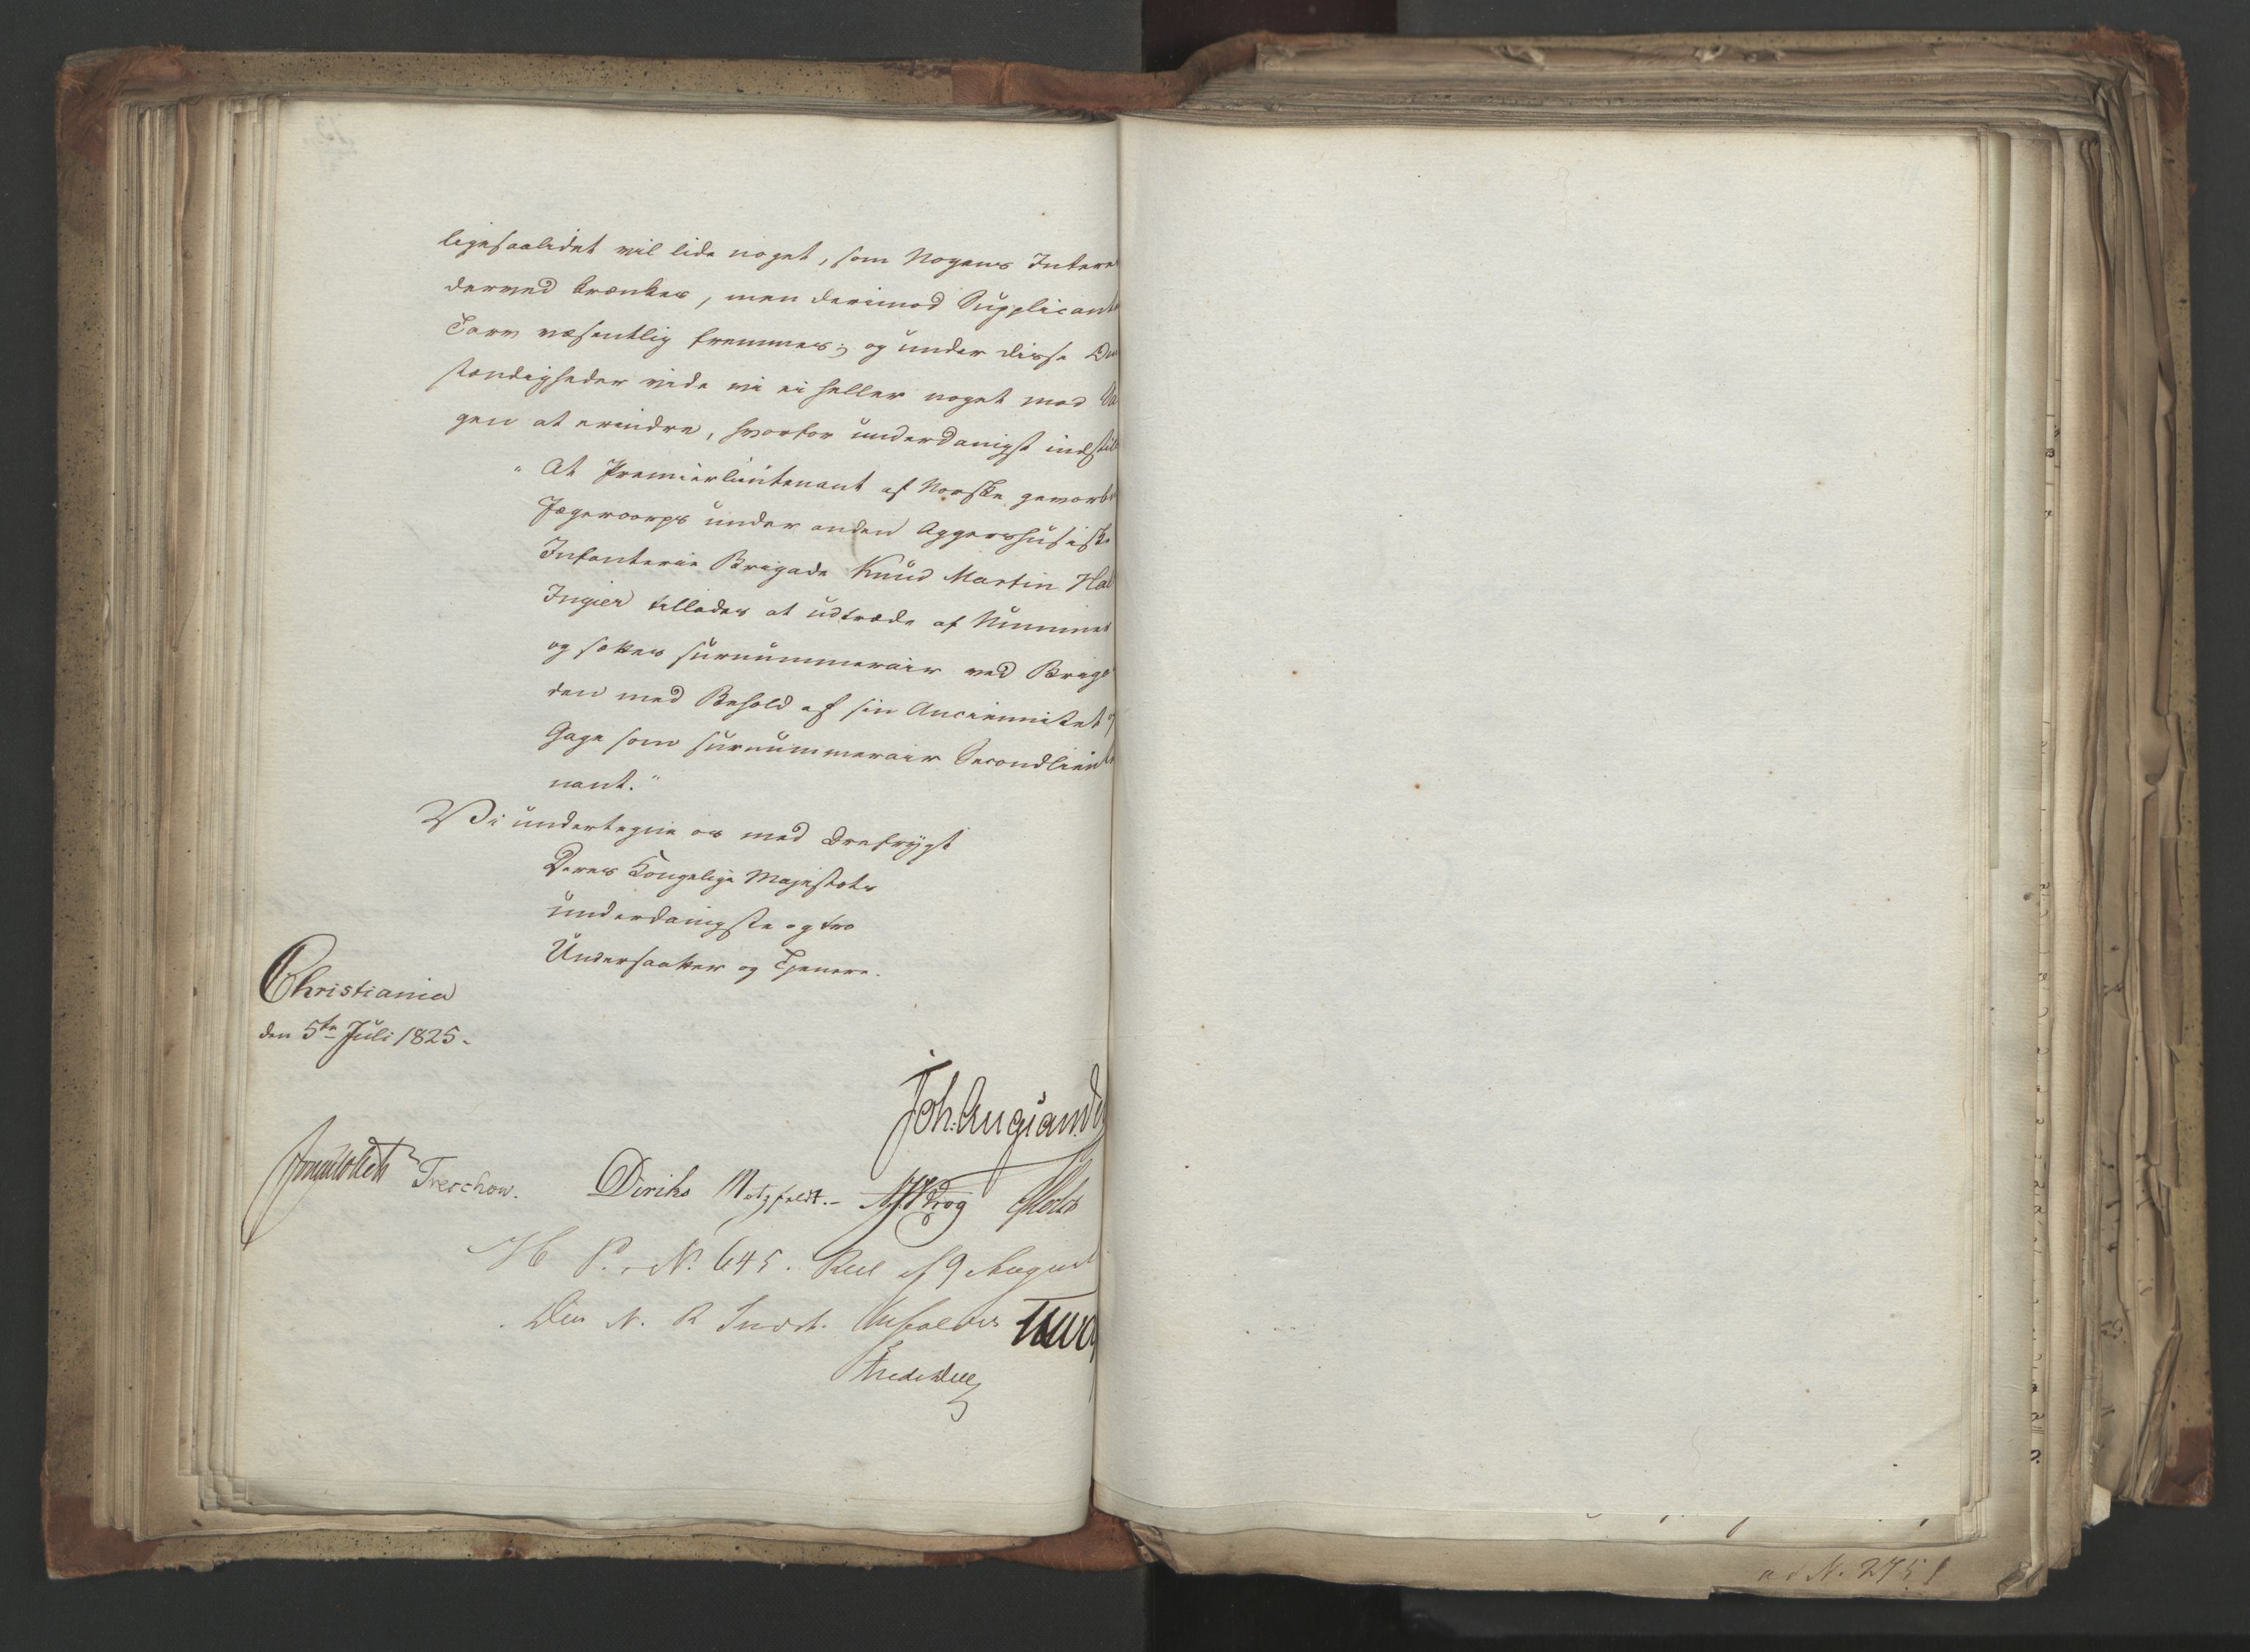 ligesaalidet vil lide noget, som Nogens Intere
derved krænkes, men derimod Supplicant
Tarv væsentlig fremmes; og under disse Om
stændigheder vide vi ei heller noget mod Sa
gen at erindre, hvorfor underdanigst indstil
"At Premierlieutenant af Norske gevorbn
Jægercorps under anden Aggershusiske
Infanterie Brigade Knud Martin Hal
Ingier tillades at udtræde af Nummer
og sættes surnummerair ved Briga
den med Behold af sin Anciennitet og
Gage som surnummerair Secondlieute
nant."
Vi undertegne os med Ærefrygt
Deres Kongelige Majestæts
underdanigste og tro
Undersaatter og Tjenere.
Christiania
den 5te Juli 1825.
Joh. Aug Sand
Treschow. Diriks Motzfeldt. Krog Holst
H P. N. 645. Res af 9 August
Den N. R Indst. bifaldes
ad N. 2751